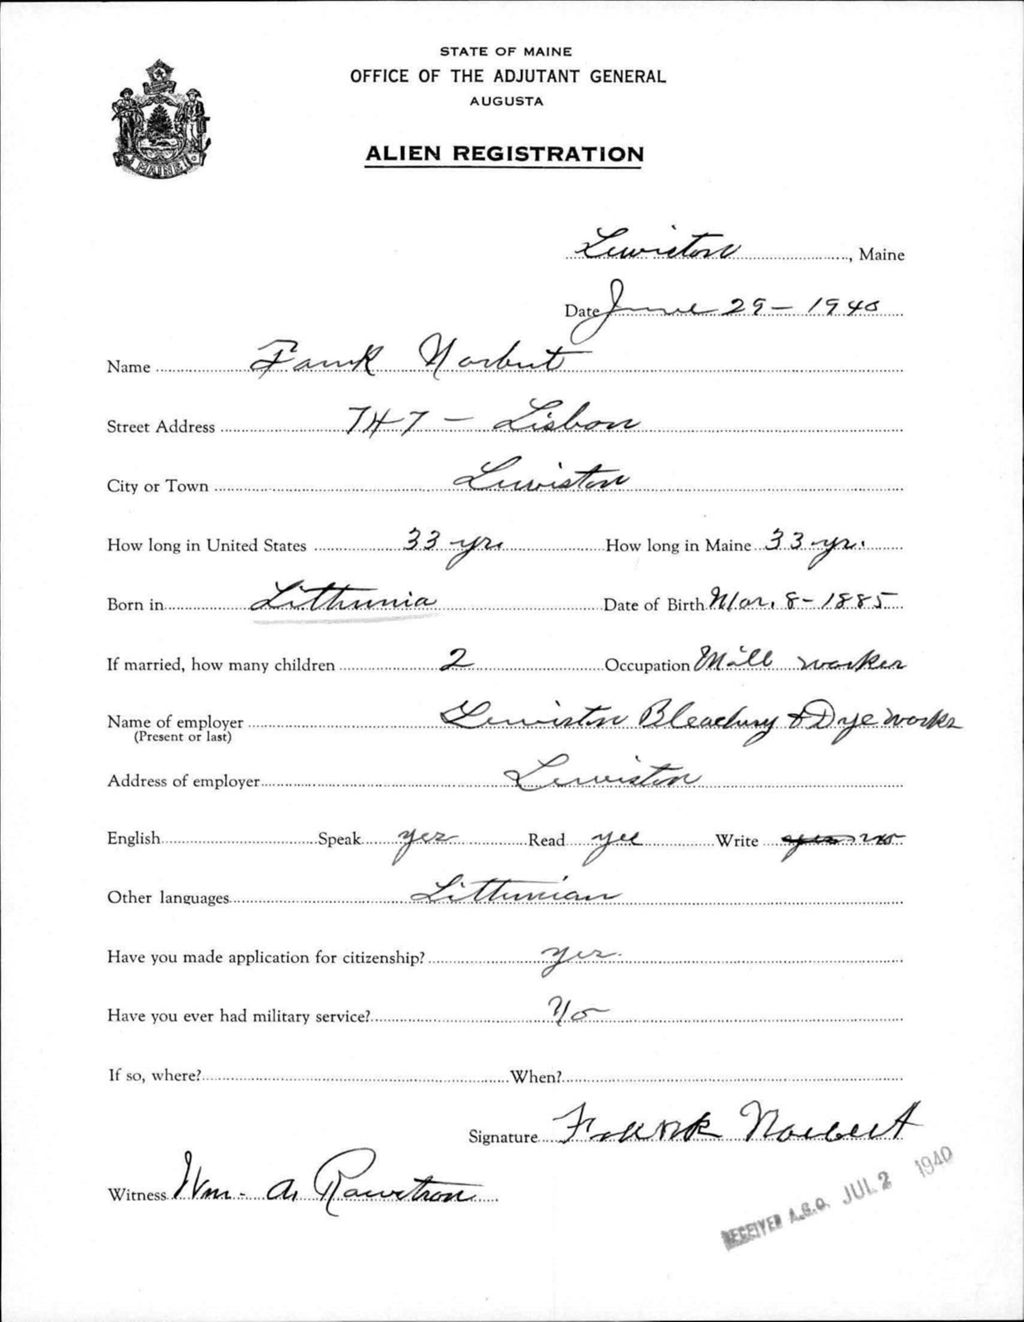 STATE OF MAINE
OFFICE OF THE ADJUTANT GENERAL
AUGUSTA
ALIEN REGISTRATION
MAINE
Lewiston, Maine
Date June 29 - 1940
Name Frank Norbut
Street Address 747 - Lisbon
City or Town Lewiston
How long in United States 33 yrs How long in Maine 33 yr.
Born in Lithunia Date of Birth Mar. 8 - 1885
If married, how many children 2 Occupation Mill worker
Name of employer Lewiston Bleachery & Dye Works
(Present or last)
Address of employer Lewiston
English Speak yes Read yes Write yes no
Other languages Lithunian
Have you made application for citizenship? yes.
Have you ever had military service? No
If so, where? When?
Signature Frank Norbert
Witness Wm. A.
RECEIVED A.G.O. JUL 2 1940